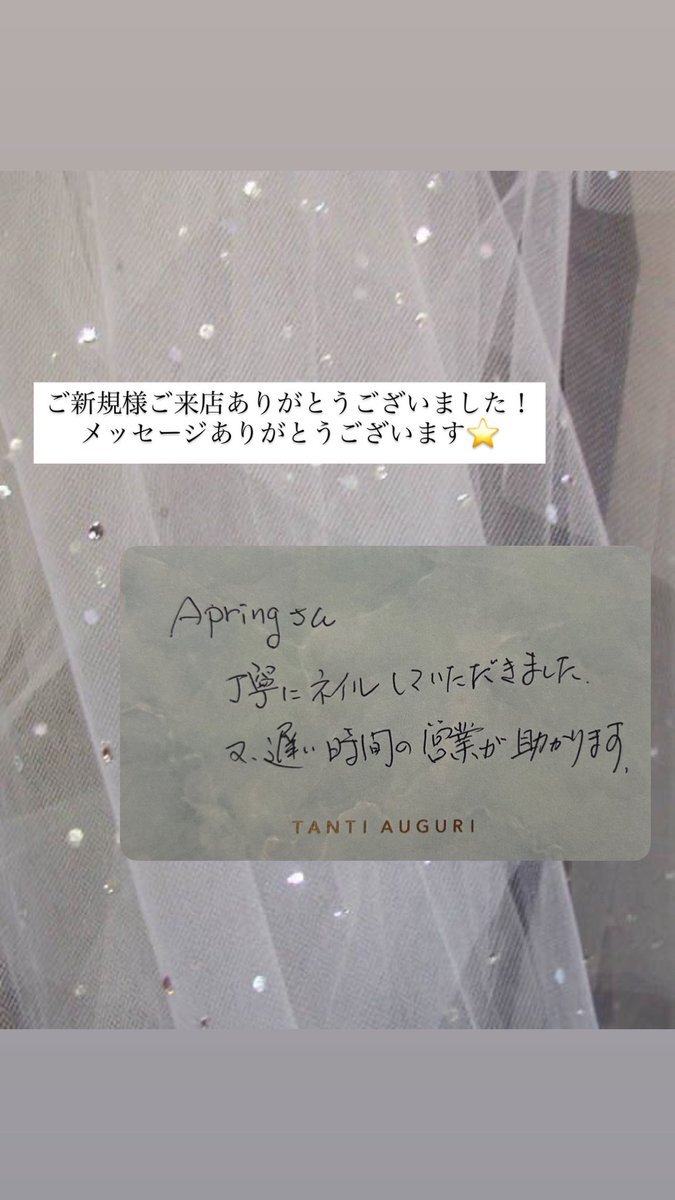 ご新規様ご来店ありがとうございました！
メッセージありがとうございます⭐
Apringさん
丁寧にネイルしていただきました.
又、遅い時間の営業が助かります.
TANTI AUGURI